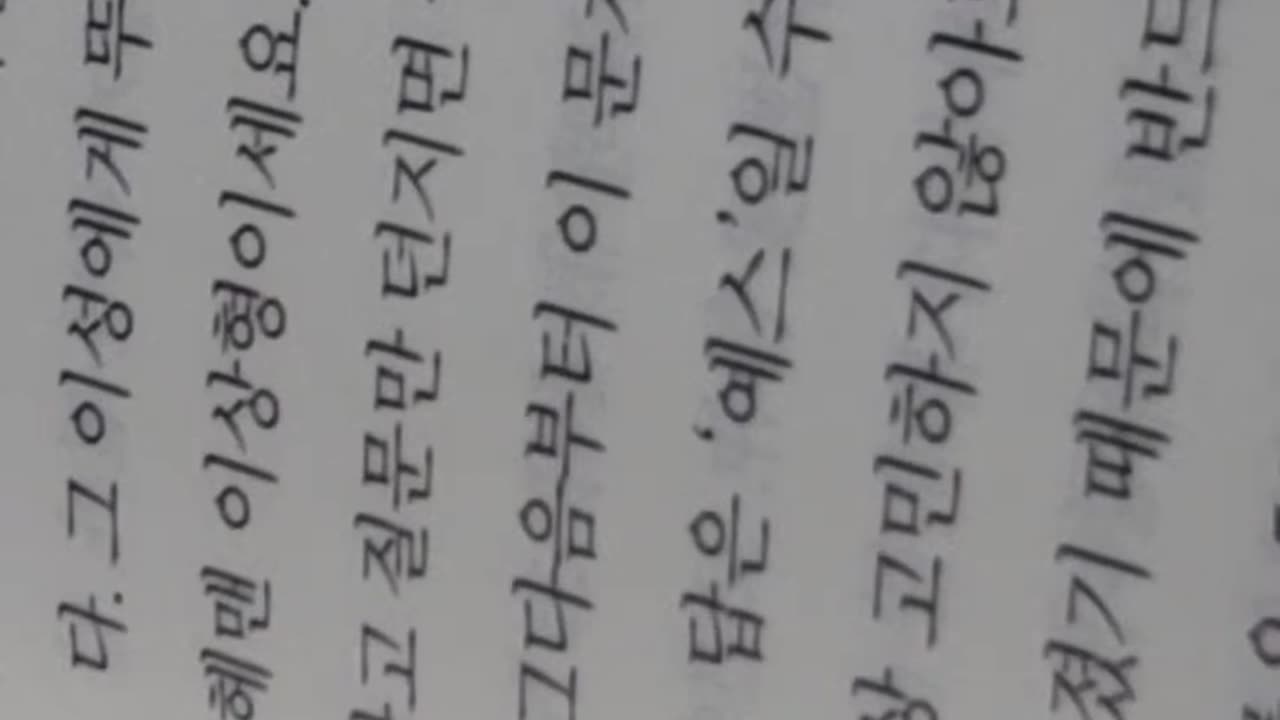 다. 그 이성에게
헤맨 이상형이세요.
고 질문만 던지면
그다음부터 이
답은 ‘예스’일 수
고민하지 않아
졌기 때문에 반드